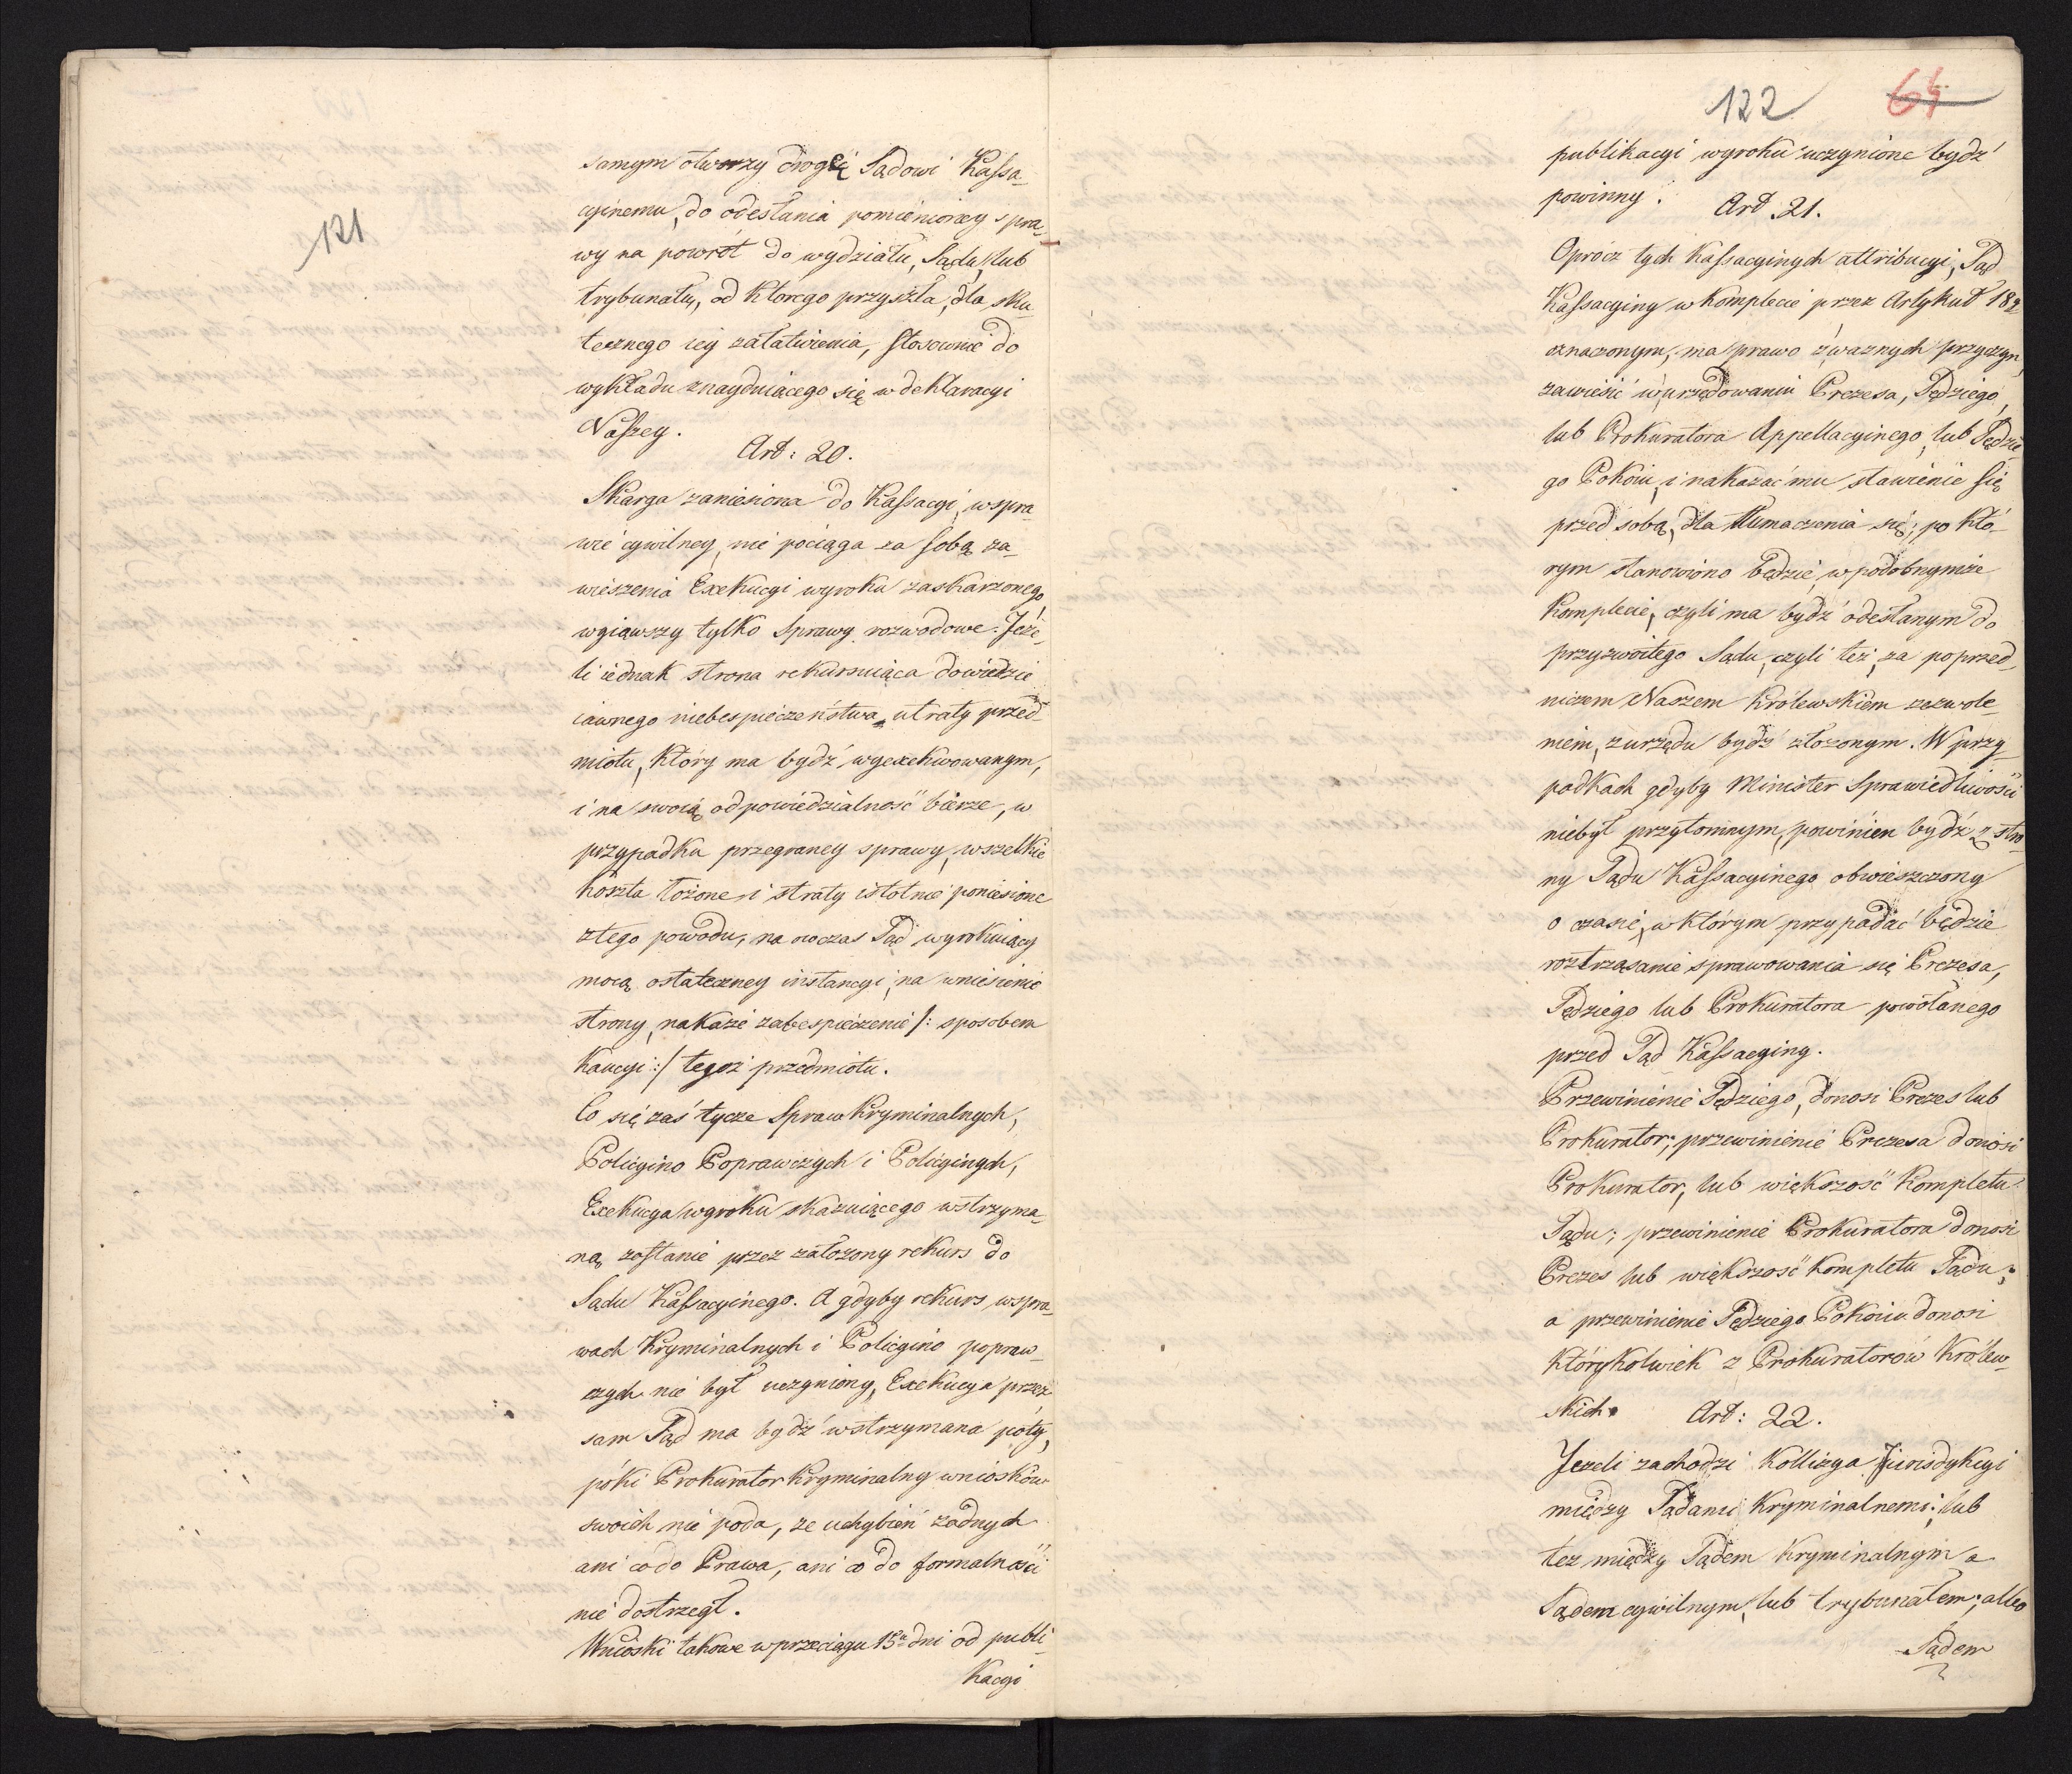 121
samym otworzy drogę Sądowi Kassa-
cyinemu, do odesłania pomienioney spra-
wy na powrót do wydziału, Sądu, lub
trybunału, od którego przyszła, dla sku-
tecznego iey załatwienia, stosownie do
wykładu znayduiącego się w deklaracyi
Naszey.
Art: 20.
Skarga zaniesiona do Kassacyi, w spra-
wie cywilney, nie pociąga za sobą za-
wieszenia Exekucyi wyroku zaskarzonego
wyiąwszy tylko Sprawy rozwodowe. Jeże-
li iednak strona rekursuiąca dowiedzie
iawnego niebespieczeństwa utraty przed-
miotu, który ma bydź wyexekwowanym,
i na swoią odpowiedzialność bierze, w
przypadku przegraney sprawy, wszelkie
koszta łożone i straty istotnie poniesione
z tego powodu, na owczas Sąd wyrokuiący
mocą ostateczney instancyi, na wniesienie
strony, nakaże zabespieczenie /: sposobem
Kaucyi :/ tegoż przedmiotu.
Co się zaś tycze Spraw Kryminalnych,
Policyino Poprawczych i Policyinych,
Exekucya wyroku skazuiącego wstrzyma-
ną zostanie przez założony rekurs do
Sądu Kassacyinego. A gdyby rekurs w spra-
wach Kryminalnych i Policyino popraw-
czych nie był uczyniony, Exekucya przez
sam Sąd ma bydź wstrzymana póty,
póki Prokurator Kryminalny wniosków
swoich nie poda, że uchybień żadnych
ani co do Prawa, ani co do formalności
nie dostrzegł.
Wnioski takowe w przeciągu 15 dni od publi-
kacyi
122 64
publikacyi wyroku uczynione bydź
powinny.
Art. 21.
Oprócz tych Kassacyinych attribucyi, Sąd
Kassacyiny w Komplecie przez Artykuł 182
oznaczonym, ma prawo z ważnych przyczyn,
zawiesić w urzędowaniu Prezesa, Sędziego,
lub Prokuratora Appellacyinego, lub Sędzie-
go Pokoiu, i nakazać mu stawienie się
przed sobą, dla tłumaczenia się; po któ-
rym stanowiono będzie w podobnymże
Komplecie, czyli ma bydź odesłanym do
przyzwoitego Sądu, czyli też, za poprzed-
niczem Naszem Królewskiém zezwole-
niem, z urzędu bydź złożonym. W przy-
padkach gdyby Minister Sprawiedliwości
niebył przytomnym, powinien bydź z stro-
ny Sądu Kassacyinego obwieszczony
o czasie, w którym przypadać będzie
roztrząsanie sprawowania się Prezesa,
Sędziego lub Prokuratora powołanego
przed Sąd Kassacyiny.
Przewinienie Sędziego, donosi Prezes lub
Prokurator; przewinienie Prezesa donosi
Prokurator, lub większość Kompletu
Sądu; przewinienie Prokuratora donosi
Prezes lub większość Kompletu Sądu;
a przewinienie Sędziego Pokoiu donosi
którykolwiek z Prokuratorów Królew-
skich.
Art: 22.
Jeżeli zachodzi Kollizya Jurisdykcyi
między Sądami Kryminalnemi; lub
też między Sądem Kryminalnym a
Sądem cywilnym, lub trybunałem; albo
Sądem